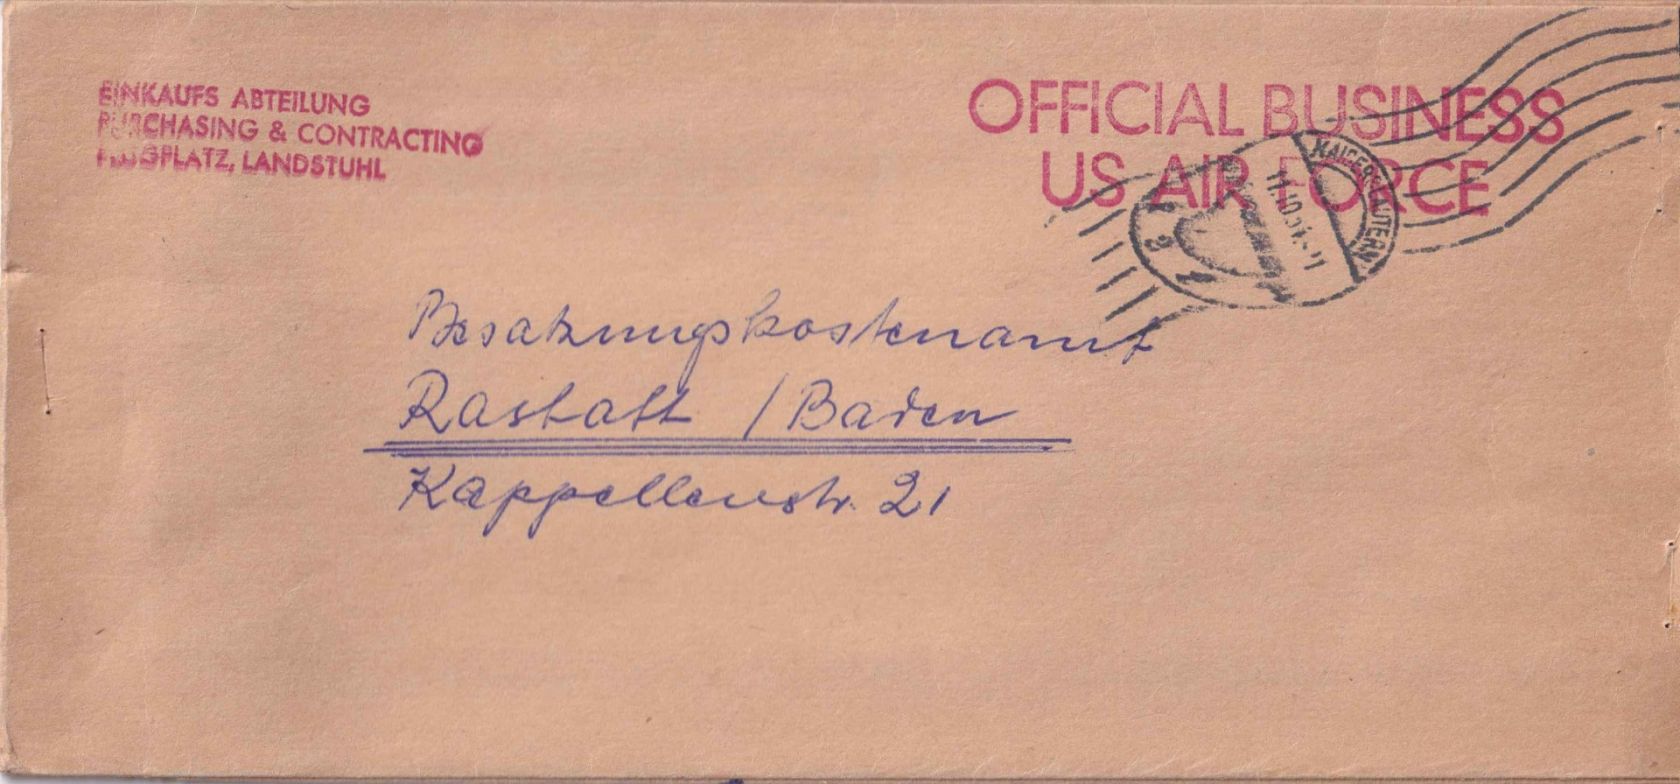 EINKAUFS ABTEILUNG
PURCHASING & CONTRACTING
FLUGPLATZ, LANDSTUHL
OFFICIAL BUSINESS
US AIR FORCE
KAISERSLAUTERN
Besatzungskostenamt
Rastatt / Baden
Kappellenstr. 21